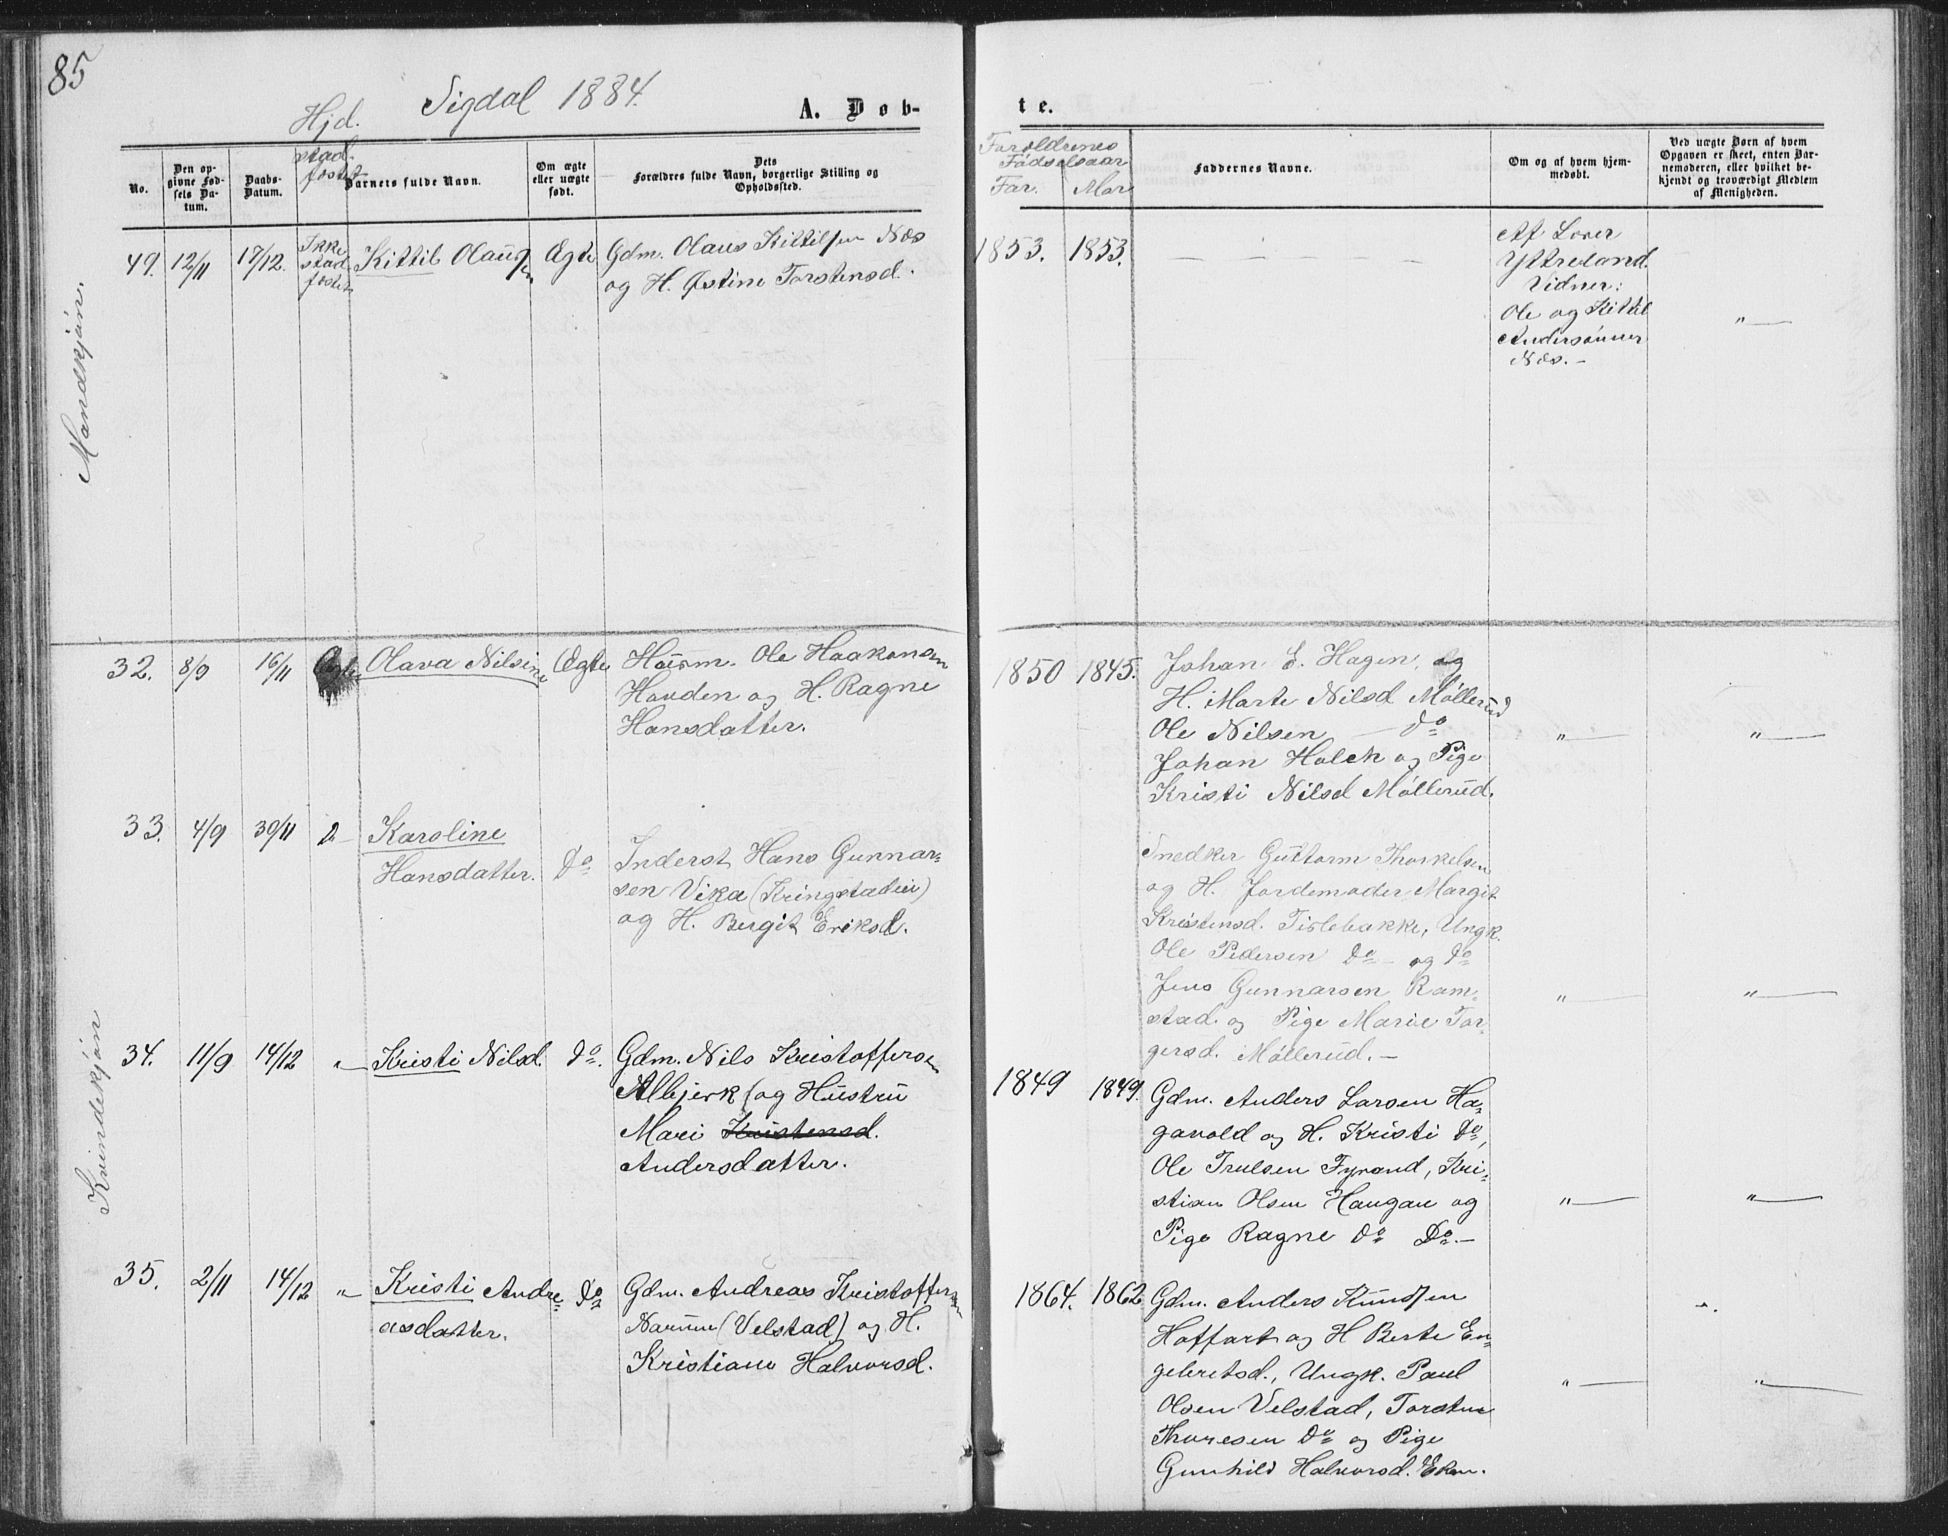 85
Sigdal 1884.
A. Døb-
te.
Hjd.
stad-
fæstet
No.
Den op-
givne Fød-
sels Da-
tum.
Daabs-
Datum.
Barnets fulde Navn.
Om ægte
eller uægte
født.
Dets
Forældres fulde Navn, borgerlige Stilling og
Opholdssted.
Forældrenes
Fødselsaar
Far. Mor
Faddernes Navne.
Om og af hvem hjem-
medøbt.
Ved uægte Børn af hvem
Opgaven er skeet, enten Bar-
nemoderen, eller hvilket be-
kjendt og troværdigt Medlem
af Menigheden.
Mandkjøn.
49. 12/11 17/12.
Ikke
stad
fæstet
Kittil Olausen
Ægte
Gdm. Olaus Kittilsen Næs
og H. Østine Torstensd.
1853. 1853.
— — — — —
Af Lover
Ytreland.
Vidner:
Ole og Kittil
Andersønner
Næs. -
" —
Kvindekjøn
32. 8/9 16/11
Olava Nilsine
Ægte
Huusm. Ole Haakonsen
Houden og H. Ragne
Hansdatter.
1850 1845.
Johan E. Hagen, og
H. Marte Nilsd Møllerud
Ole Nilsen — do
Johan Holck og Pige
Kristi Nilsd Møllerud.
" —
" —
33. 4/9 30/11
Karoline
Hansdatter.
Do
Inderst Hans Gunnar-
sen Vika (Kringstadeie)
og H. Bergit Eriksd.
Snedker Guttorm Thorkelsen
og H. Jordemoder Margit
Kristensd. Tislebakke, Ungk.
Ole Pedersen Do - og do
Jens Gunnarsen Ram-
stad. og Pige Marie Tor-
gersd. Møllerud. -
" —
" —
34. 11/9 14/12 " —
Kristi Nilsd.
do.
Gdm. Nils Kristoffersen
Albjerk (og Hustru
Mari Kristensd.
Andersdatter.
1849 1849.
Gdm. Anders Larsen Ha-
gavold og H. Kristi Do,
Ole Trulsen Fyrand, Kri-
stian Olsen Haugan og
Pige Ragne do Do. -
" —
" —
35. 2/11 14/12 " —
Kristi Andre-
asdatter.
Do
Gdm. Andreas Kristoffersen
Narum (Velstad) og H.
Kristiane Halvorsd.
1864. 1862
Gdm. Anders Knudsen
Hoffart og H Berte En-
gebretsd., Ungk. Paul
Olsen Velstad, Torsten
Thoresen Do og Pige
Gunhild Halvorsd.
" —
" —